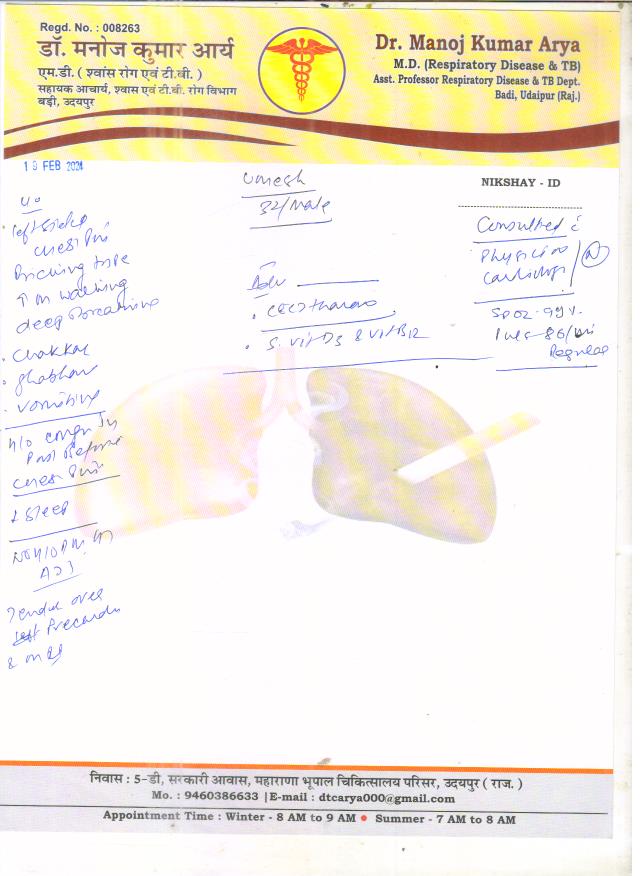 Regd. No. : 008263
डॉ. मनोज कुमार आर्य
एम.डी. ( श्वांस रोग एवं टी.बी. )
सहायक आचार्य, श्वास एवं टी.बी. रोग विभाग
बड़ी, उदयपुर
Dr. Manoj Kumar Arya
M.D. (Respiratory Disease & TB)
Asst. Professor Respiratory Disease & TB Dept.
Badi, Udaipur (Raj.)
19 FEB 2024
Umesh
32/Male
NIKSHAY - ID
left side
chest Pain
Pricking type
↑ on walking
deep Breathing
. Chakkar
. ghabhar
. vomiting
H/O
Past Before
chest Pain
↓ Sleep
Tender over
left Precardu
Adv
. CECT Thorax
. S. Vit D3 & Vit B12
Consulted c̄
Physician
Cardiology
N
SPO2 - 99%
Pulse - 86/min
Regular
निवास : 5-डी, सरकारी आवास, महाराणा भूपाल चिकित्सालय परिसर, उदयपुर ( राज. )
Mo. : 9460386633 | E-mail : dtcarya000@gmail.com
Appointment Time : Winter - 8 AM to 9 AM • Summer - 7 AM to 8 AM